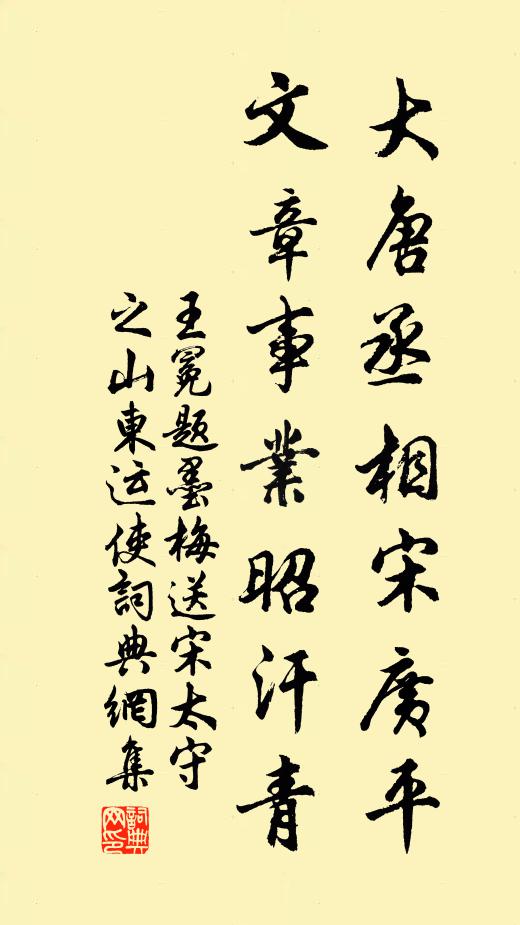 大唐丞相宋廣平
文章事業昭汗青
王冕題墨梅送宋太守
之山東运使詞典網集
詞典網印